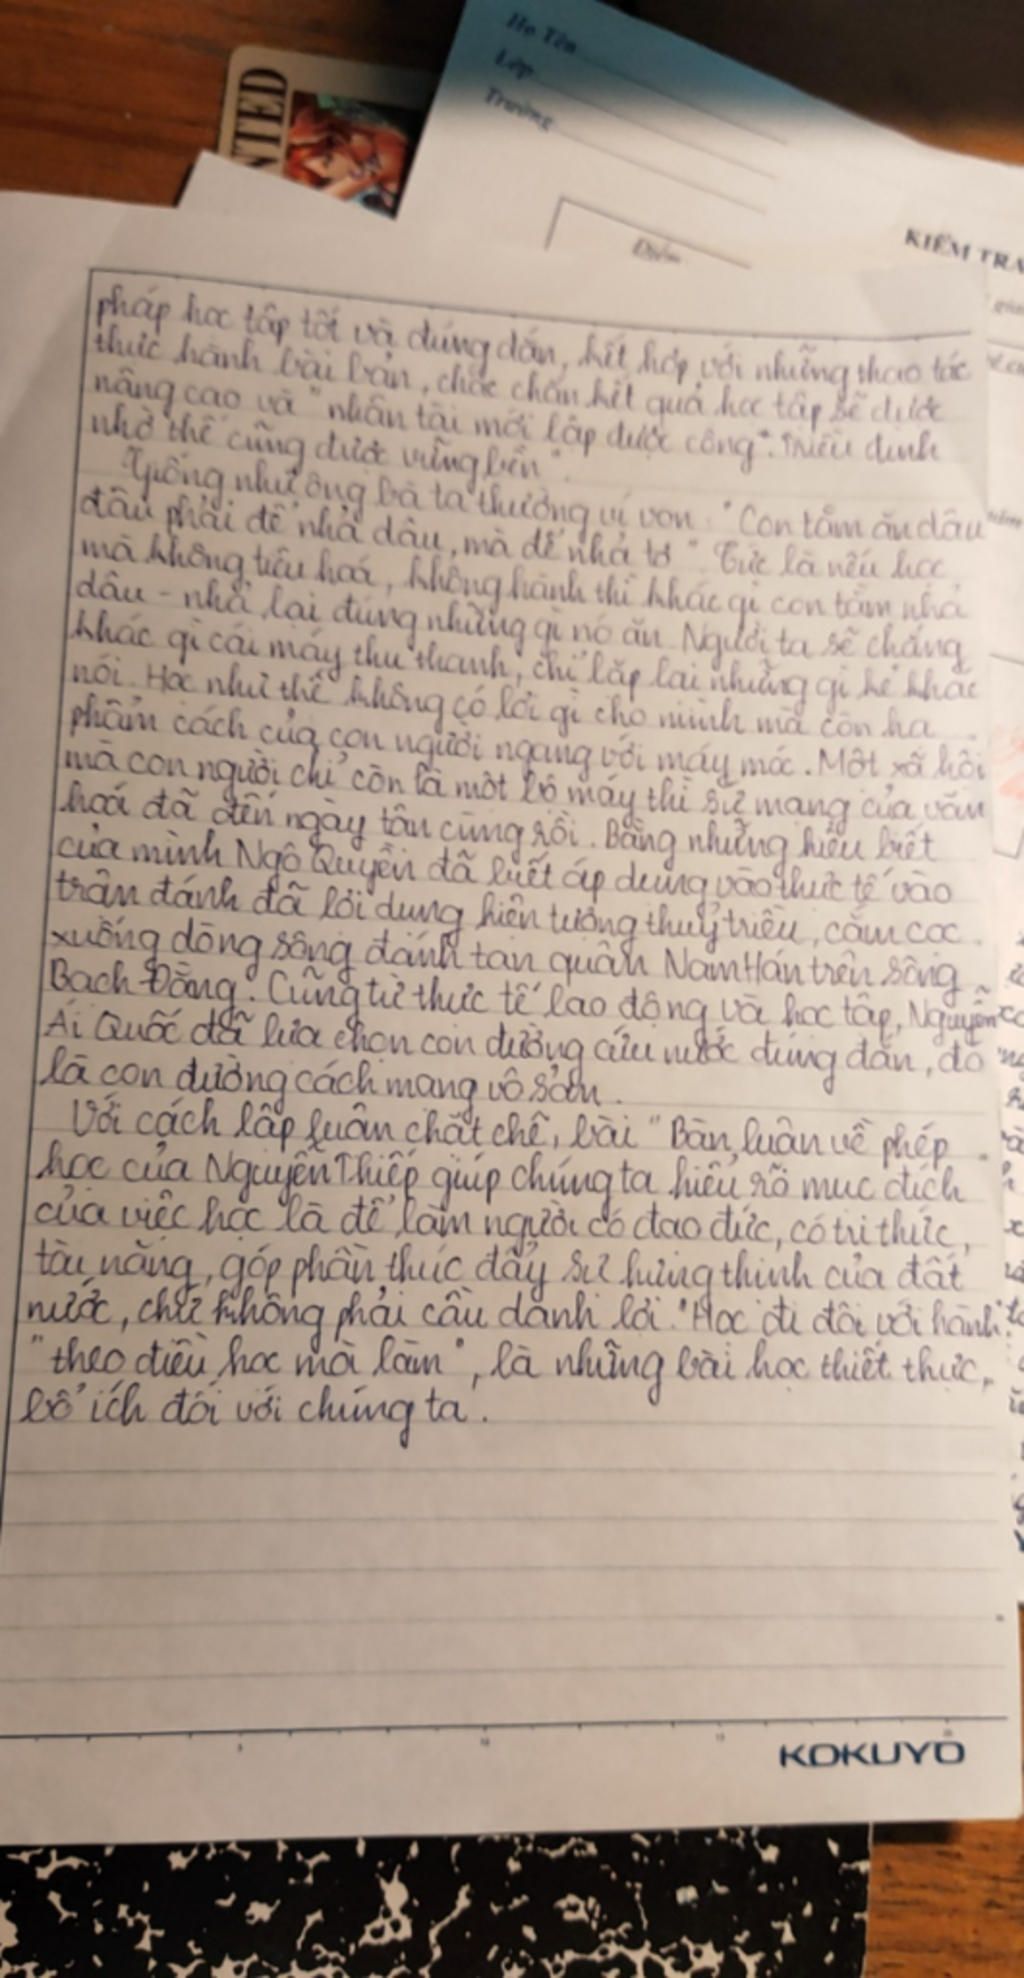 Họ Tên
Lớp
Trường
NTED
Điểm
KIỂM TRA
pháp học tập tốt và đúng đắn, kết hợp với những thao tác
thực hành bài bản, chắc chắn kết quả học tập sẽ được
nâng cao và "nhân tài mới lập được công". Triều đình
nhờ thế cũng được vững bền".
Giống như ông bà ta thường ví von: "Con tằm ăn dâu
đâu phải để nhả dâu, mà để nhả tơ". Tức là nếu học
mà không tiêu hoá, không hành thì khác gì con tằm nhả
dâu - nhả lại đúng những gì nó ăn. Người ta sẽ chẳng
khác gì cái máy thu thanh, chỉ lặp lại những gì kẻ khác
nói. Học như thế không có lợi gì cho mình mà còn hạ
phẩm cách của con người ngang với máy móc. Một xã hội
mà con người chỉ còn là một bộ máy thì sứ mạng của văn
hoá đã đến ngày tận cùng rồi. Bằng những hiểu biết
của mình Ngô Quyền đã biết áp dụng vào thực tế vào
trận đánh đã lợi dụng hiện tượng thuỷ triều, cắm cọc
xuống dòng sông đánh tan quân Nam Hán trên sông
Bạch Đằng. Cũng từ thực tế lao động và học tập, Nguyễn
Ái Quốc đã lựa chọn con đường cứu nước đúng đắn, đó
là con đường cách mạng vô sản.
Với cách lập luận chặt chẽ, bài "Bàn luận về phép
học của Nguyễn Thiếp giúp chúng ta hiểu rõ mục đích
của việc học là để làm người có đạo đức, có tri thức,
tài năng, góp phần thúc đẩy sự hưng thịnh của đất
nước, chứ không phải cầu danh lợi. "Học đi đôi với hành"
"theo điều học mà làm", là những bài học thiết thực,
bổ ích đối với chúng ta.
KOKUYO